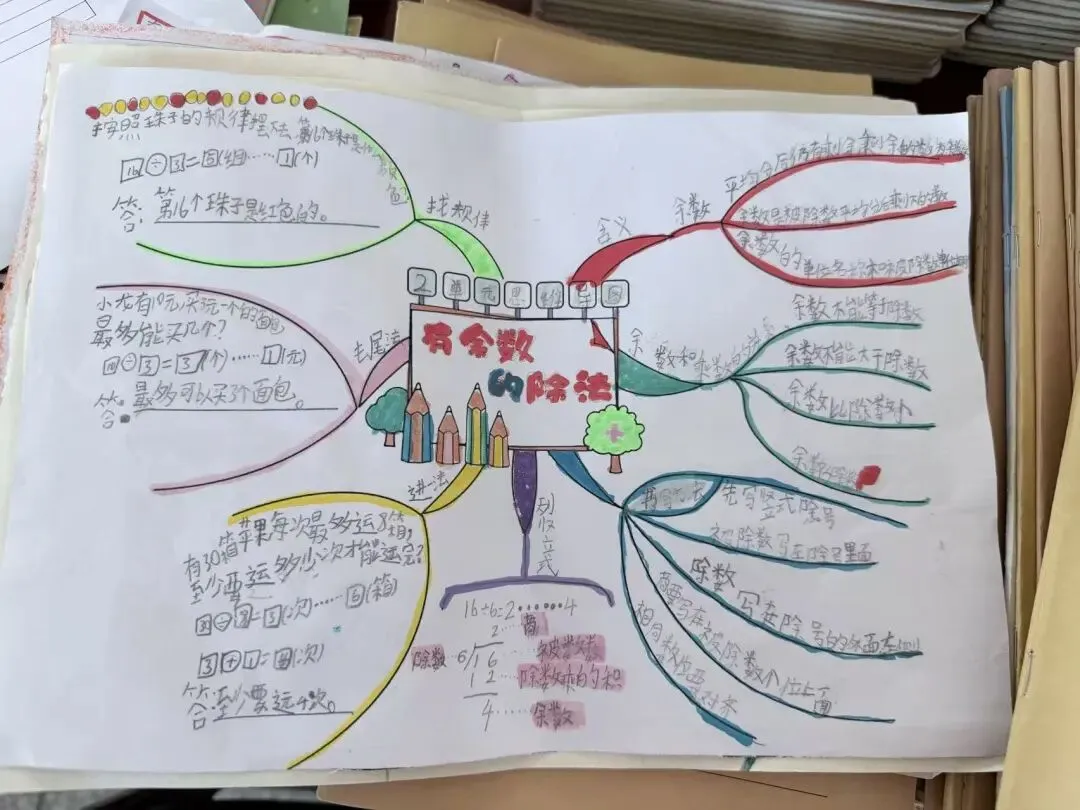 2单元思维导图
有余数
的除法
找规律
按照珠子的规律摆法,第16个珠子是什么颜色
16÷3=5(组)……1(个)
答:第16个珠子是红色的。
去尾法
小龙有10元,买元一个的面包
最多能买几个?
10÷3=3(个)……1(元)
答:最多可以买3个面包。
进一法
有30箱苹果每次最多运8箱,
至少要运多少次才能运完?
30÷8=3(次)……6(箱)
3+1=4(次)
答:至少要运4次。
含义
余数
平均分后仍有
余数是被除数平均分后剩下的数
余数的单位名称和被除数
余数和
余数不能等于除数
余数不能大于除数
余数比除数小
余数
先写竖式除号
被除数写在除号里面
除数写在除号的外面左侧
商要写在被除数个位上面
相同数位要对齐
列竖式
16÷6=2……4
2……商
除数……6/16……被除数
12……除数和商的积
4……余数